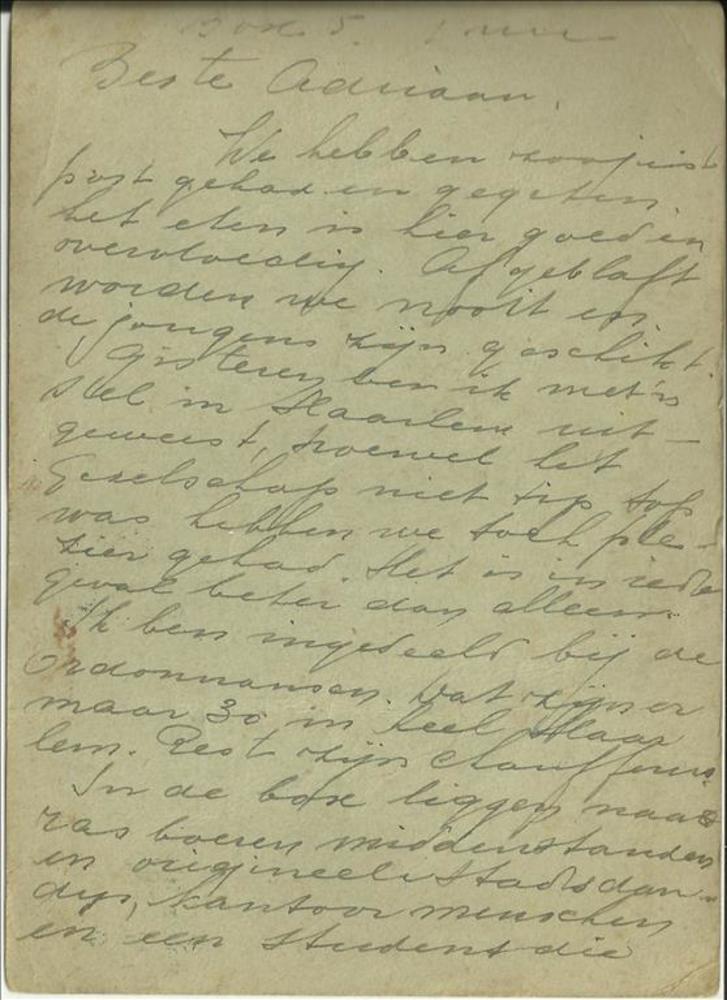 Box 5.
Beste Adriaan,
We hebben zoojuist
post gehad en gegeten.
het eten is hier goed en
overvloedig. Afgeblaft
worden we nooit en
de jongens zijn geschikt.
Gisteren ben ik met 'n
stel in Haarlem uit-
geweest, hoewel het
Gezelschap niet tip top
was hebben we toch ple-
zier gehad. Het is in ieder
geval beter dan alleen.
Ik ben ingedeeld bij de
Ordonnansen. Dat zijn er
maar 30 in heel Haar
lem. Rest zijn chauffeurs.
In de box liggen naast
ras boeren middenstanders
en origineele Stadsdan-
dys, kantoor menschen
en een student die